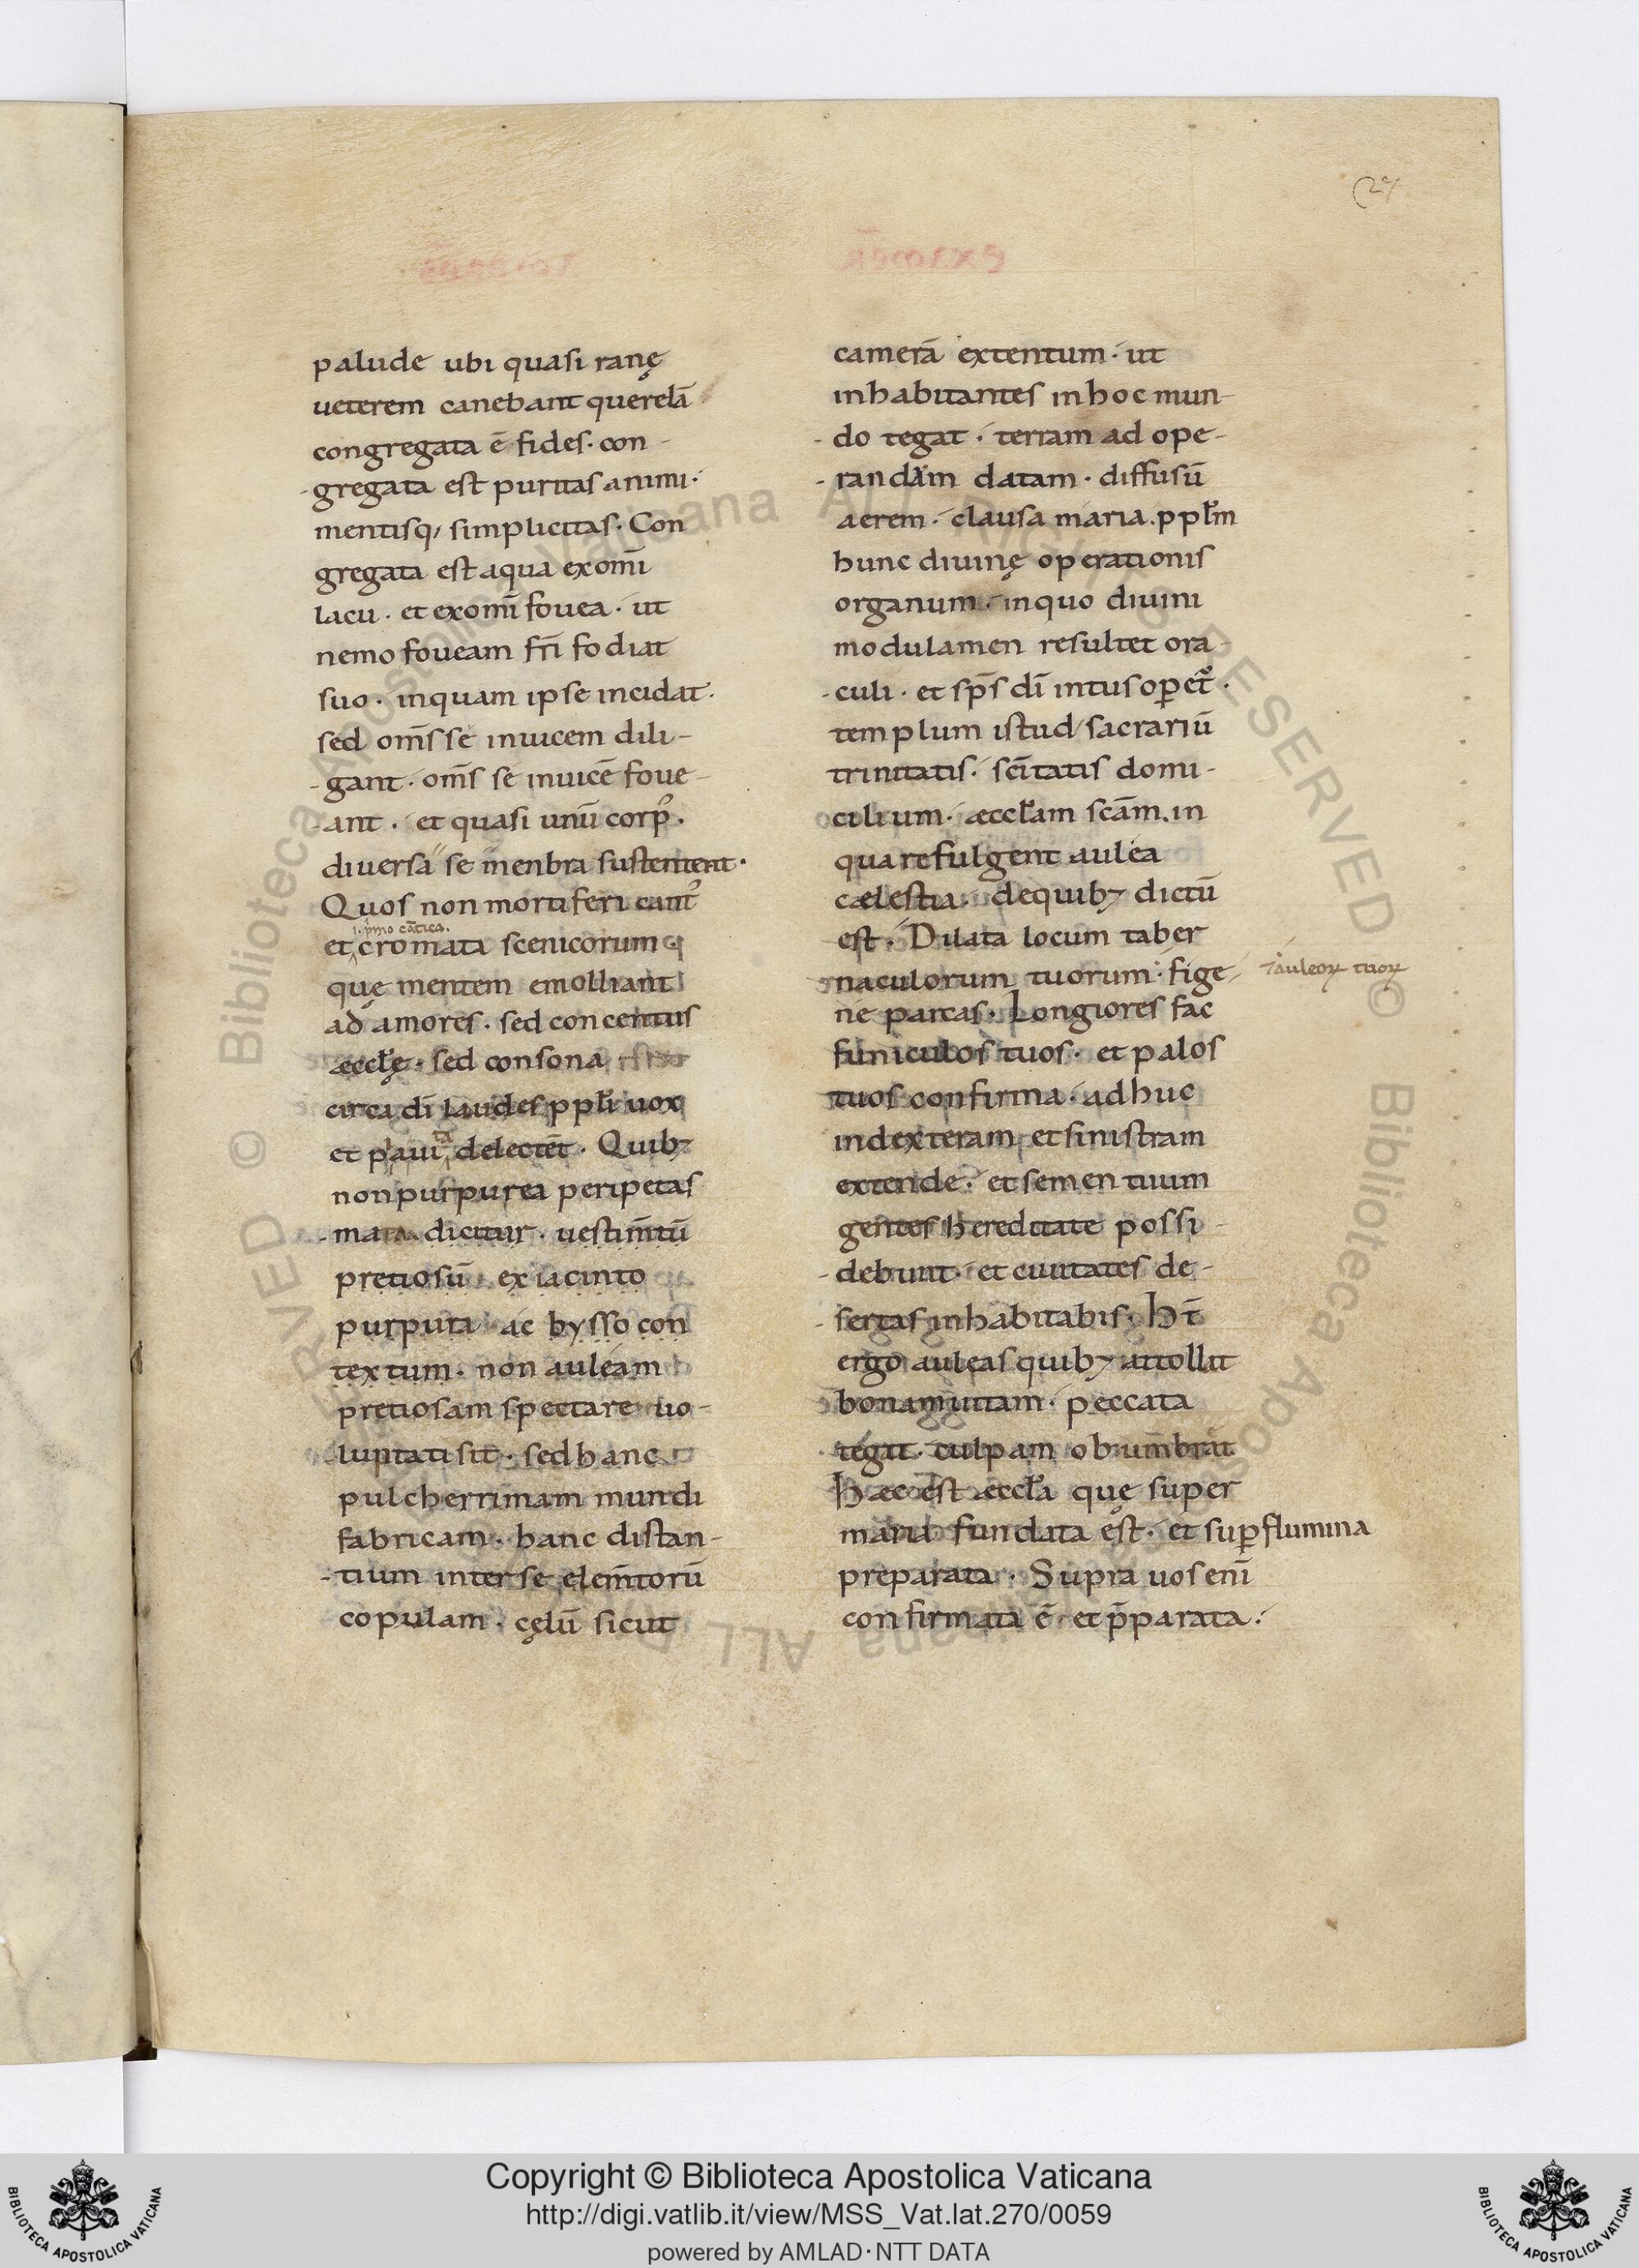 27
palude ubi quasi ranę
ueterem canebant querelā
congregata ē fides· con-
-gregata est puritas animi·
mentisq; simplicitas· Con
gregata est aqua ex om̄i
lacu· et ex om̄i fouea· ut
nemo foueam fr̄i fodiat
suo· in quam ipse incidat·
sed om̄s se inuicem dili-
-gant· om̄s se inuicē foue-
-ant· et quasi unū corp᾽·
diuersa se menbra sustentent·
Quos non mortiferi cant᾽
i. pmo cātica.
et cromata scenicorum
quę mentem emolliant
ad amores· sed concentus
æccłę· sed consona
circa dī laudes ppłi uox
et p aui ta delectēt· Quibꝫ
non purpurea peripetas
mata· dicitur· uestim̄tū
pretiosū ex iacinto
purpura ac bysso con
textum· non auleam
pretiosam spectare uo-
luptati sit· sed hanc
pulcherrimam mundi
fabricam· hanc distan-
-tium inter se elem̄torū
copulam· cęlū sicut
camerā extentum· ut
inhabitantes in hoc mun-
-do tegat· terram ad ope-
-randam datam· diffusū
aerem· clausa maria· ppłm
hunc diuinę operationis
organum· in quo diuini
modulamen resultet ora-
-culi· et sp̄s dī intus oꝑet᷑·
templum istud sacrariū
trinitatis· sc̄itatis domi-
cilium· æccłam sc̄am· in
qua refulgent aulea
cælestia· de quibꝫ dictū
est· Dilata locum taber
naculorum tuorum· fige
ı̄auleoꝝ tuoꝝ
ne parcas· Longiores fac
funiculos tuos· et palos
tuos confirma· adhuc
in dexteram et sinistram
extende· et semen tuum
gentes hereditate possi-
-debunt· et ciuitates de-
-sertas inhabitabis· Ht̄
ergo auleas quibꝫ attollit
bonam uitam· peccata
tegit· culpam obumbrat
Hæc est æccła quę super
maria fundata est· et suꝑ flumina
preparata· Supra uos enī
confirmata ē et p̄parata·
© Biblioteca Apostolica Vaticana ALL RIGHTS RESERVED © Biblioteca Apostolica Vaticana ALL RIGHTS RESERVED
Copyright © Biblioteca Apostolica Vaticana
http://digi.vatlib.it/view/MSS_Vat.lat.270/0059
powered by AMLAD·NTT DATA
BIBLIOTECA APOSTOLICA VATICANA
BIBLIOTECA APOSTOLICA VATICANA